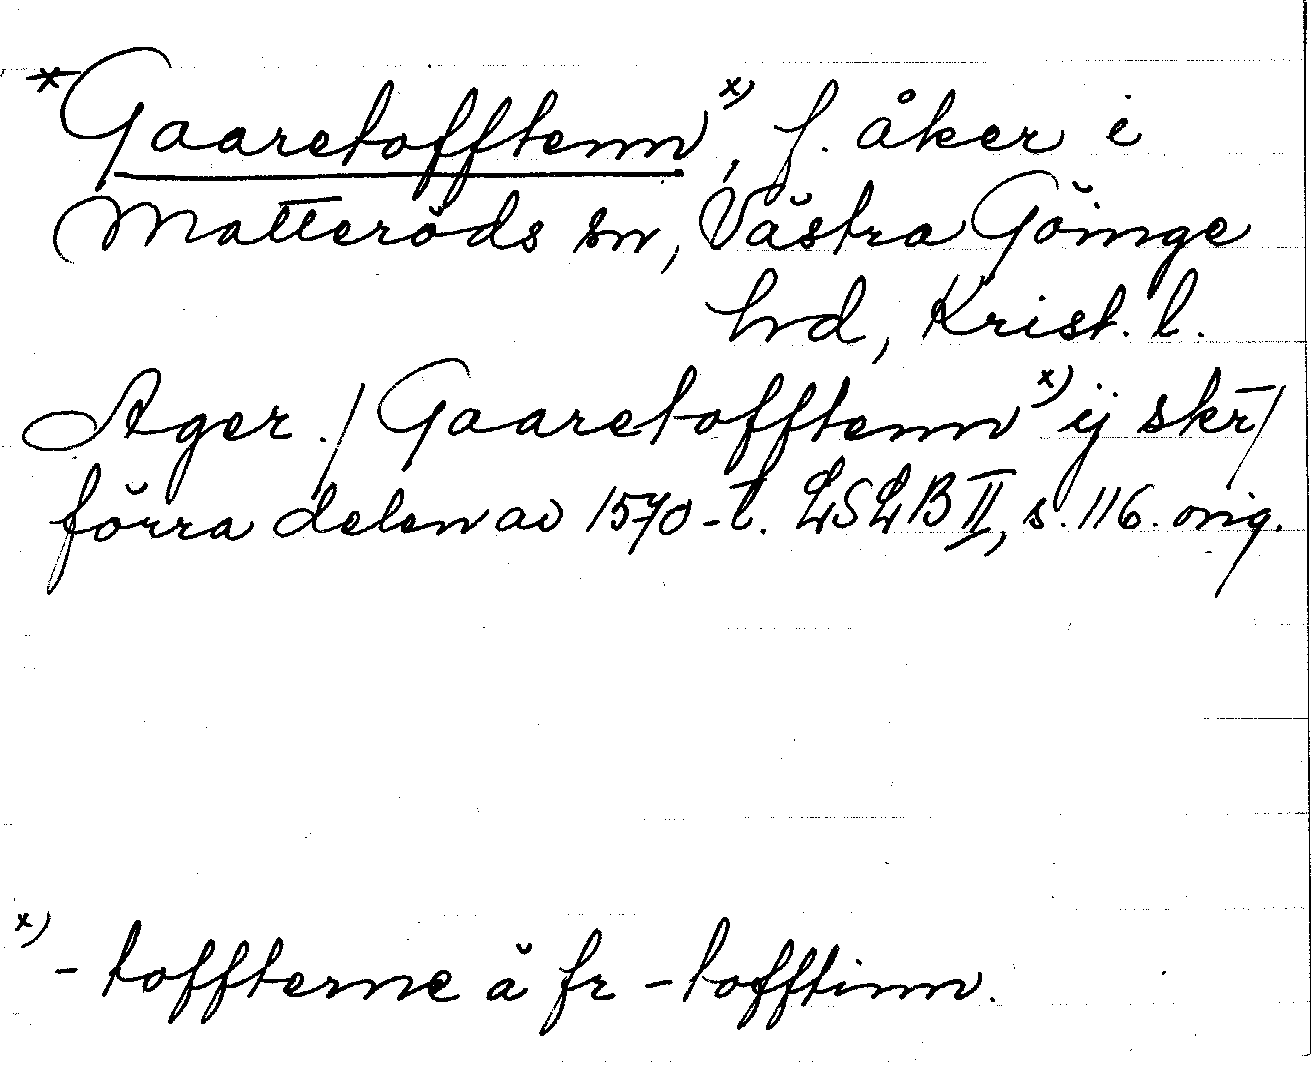 *Gaaretofftenn x), f. åker i
Matteröds sn, Västra Göinge
hrd, Krist. l.
Ager ./ Gaaretofftenn x) ej skr/
förra delen av 1570-t. LSLB II, s. 116. orig.
x) - toffterne ä fr - tofftinn.